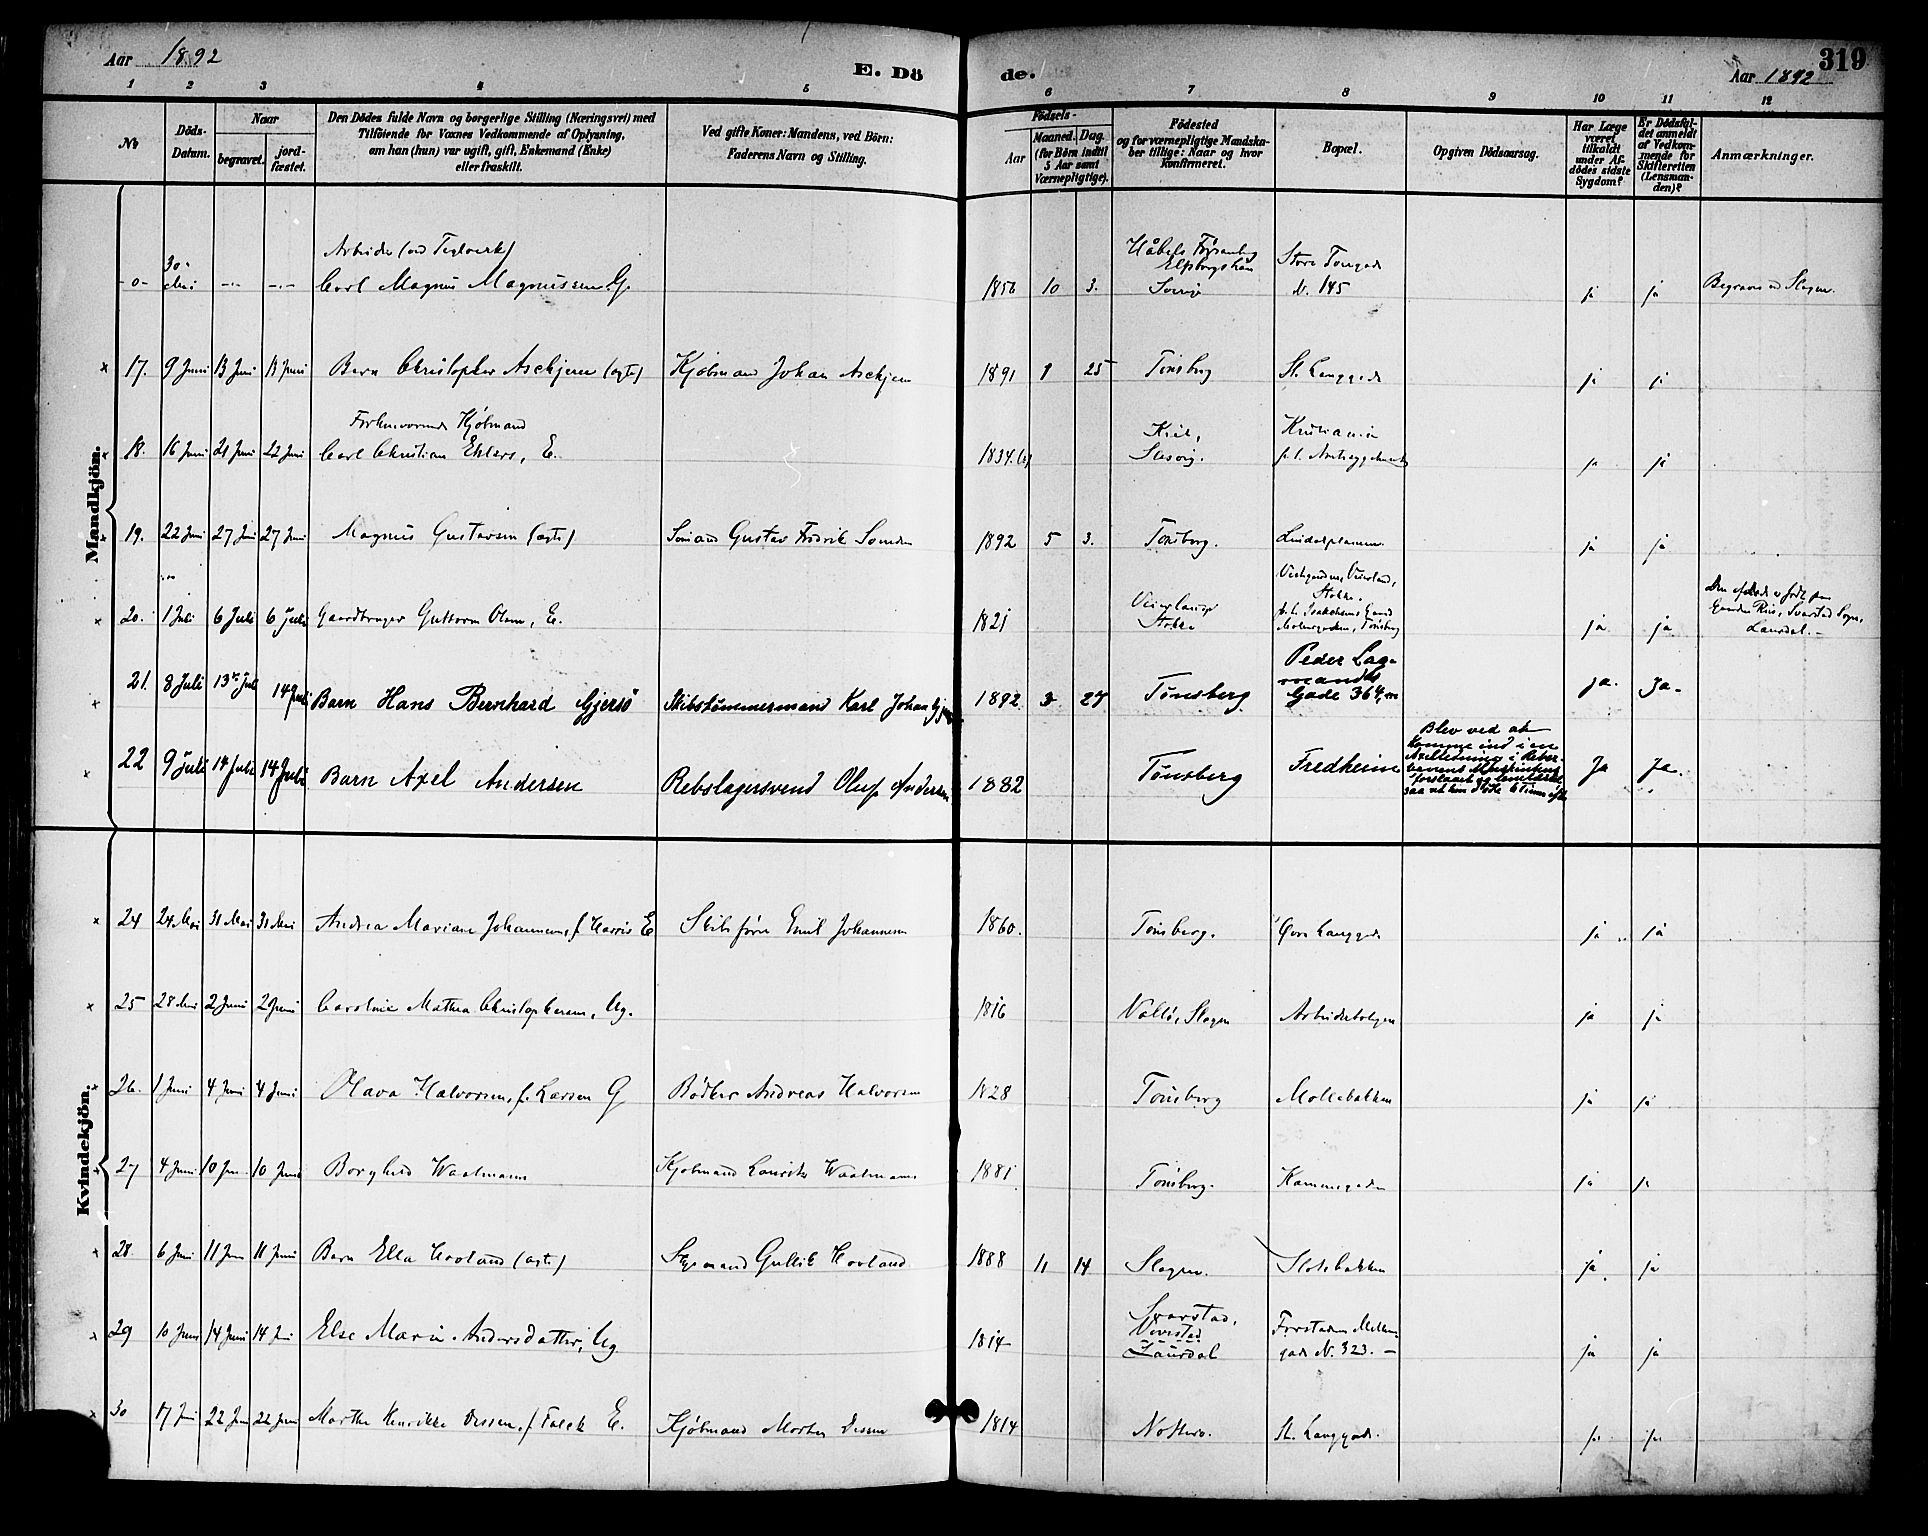 Aar 1892
E. Dö
de.
Aar 1892
319
1 2 3 4 5 6 7 8 9 10 11 12
No
Döds-
Datum.
Naar
begravet.
jord-
fæstet.
Den Dödes fulde Navn og borgerlige Stilling (Næringsvei) med
Tilföiende for Voxnes Vedkommende af Oplysning,
om han (hun) var ugift, gift, Enkemand (Enke)
eller fraskilt.
Ved gifte Koner: Mandens, ved Börn:
Faderens Navn og Stilling.
Födsels-
Aar
Maaned. Dag.
(for Börn indtil
5 Aar samt
Værnepligtige).
Födested
og for værnepligtige Mandska-
ber tillige: Naar og hvor
konfirmeret.
Bopæl.
Opgiven Dödsaarsag.
Har Læge
været
tilkaldt
under Af-
dödes sidste
Sygdom?
Er Dödsfal-
det anmeldt
af Vedkom-
mende for
Skifteretten
(Lensman-
den)?
Anmærkninger.
Mandkjön.
Arbeider (ved Teglverk)
-0- 30 Mai -"- -"- Carl Magnus Magnussen G. 1850 10 3. Store Torvgade N. 145 ja ja Begravet ved Slagen.
17. 9 Juni 13 Juni 13 Juni Barn Christopher Aschjem (ægte) Kjøbmand Johan Aschjem 1891 1 25 Tønsberg St. Langgade ja ja
Forhenværende Kjøbmand
18. 16 Juni 21 Juni 22 Juni Carl Christian Ehlers, E. 1834 Kiel, Slesvig. Kristiania ja ja
19. 22 Juni 27 Juni 27 Juni Magnus Gustavsen (ægte) Sømand Gustav Fredrik 1892 5 3. Tønsberg. ja ja
20. 1 Juli 6 Juli 6 Juli Gaardbruger Guttorm Olsen, E. 1821 Stokke Stokke, Tønsberg ja ja Svarstad Sogn, Laurdal. -
21. 8 Juli 13de Juli 14 Juli Barn Hans Bernhard Gjersö Skibstömmermand Karl Johan 1892 3 27 Tønsberg. Peder Lag-
mands
Gade 364, ja. Ja.
22 9 Juli 14 Juli 14 Juli Barn Axel Andersen Rebslagersvend Oluf Andersen 1882 Tønsberg Fredheim Blev ved at
komme ind i en
Axelledning i Reber-
banens Maskinhus
forslaaet og lemlæstet
saa at han döde 6 Timer efter Ja Ja.
Kvindekjön.
24 24 Mai 31 Mai 31 Mai Andrea Mariane Johannesen, f. Harris E Skibsfører Emil Johannesen 1860. Tønsberg. Langgade ja ja
25 28 Mai 2 Juni 2 Juni Caroline Mathea Christophersen, Ug. 1816 Vallø, Slagen Arbeiderboligen ja ja
26. 1 Juni 4 Juni 4 Juni Olava Halvorsen, f. Larsen G Bødker Andreas Halvorsen 1828 Tønsberg Møllebakken ja ja
27 4 Juni 10 Juni 10 Juni Borghild Waalmann Kjøbmand Lauritz Waalmann 1881 Tønsberg. Kammegaden ja ja
28. 6 Juni 11 Juni 11 Juni Barn Ella Hovland (ægte) Gullik Hovland. 1888 11 14 Slagen. Slotsbakken ja ja
29 10 Juni 14 Juni 14 Juni Else Marie Andersdatter, Ug. 1814 Svarstad,
Laurdal Forstaden
gade N. 323. - ja ja
30 17 Juni 22 Juni 22 Juni Marthe Henrikke Dessen, f. Falck E. Kjøbmand Morten Dessen 1814 Nøtterø. St. Langgade. ja ja